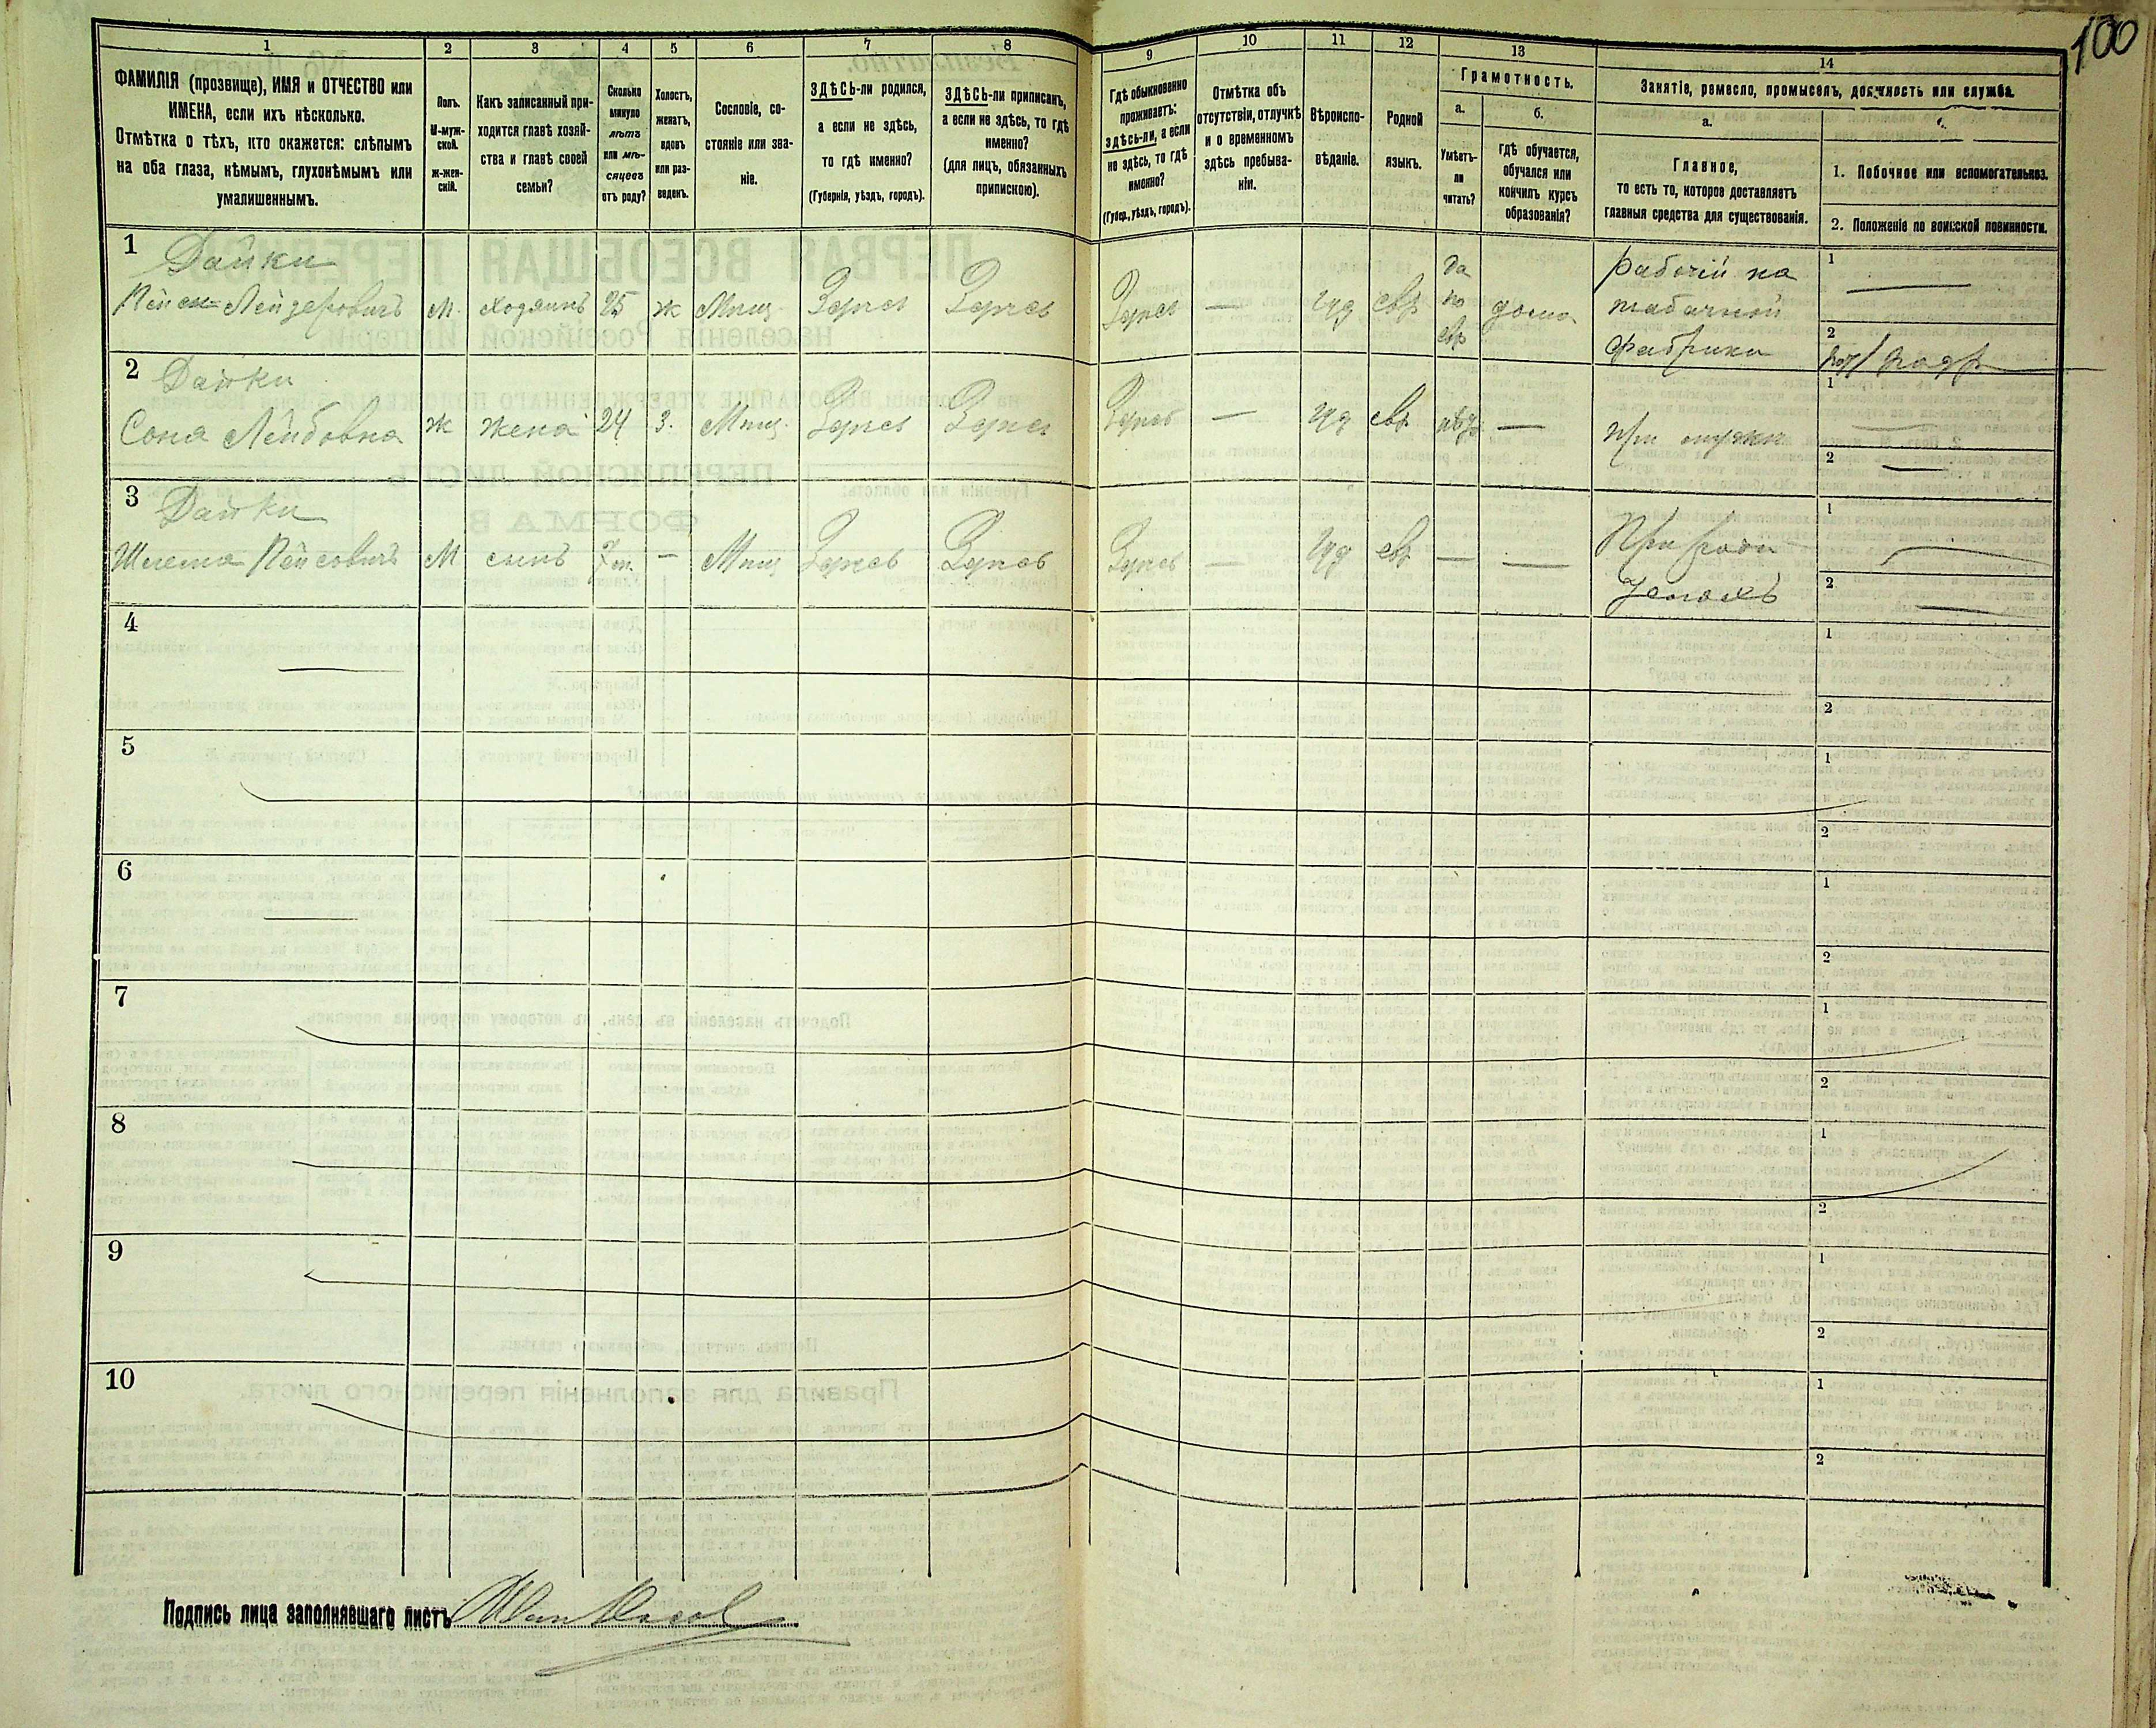 100
1 2 3 4 5 6 7 8 9 10 11 12 13 14
ФАМИЛІЯ (прозвище), ИМЯ и ОТЧЕСТВО или
ИМЕНА, если ихъ нѣсколько.
Отмѣтка о тѣхъ, кто окажется: слѣпымъ
на оба глаза, нѣмымъ, глухонѣмымъ или
умалишеннымъ.
Полъ.
М-муж-
ской.
ж-жен-
скій.
Какъ записанный при-
ходится главѣ хозяй-
ства и главѣ своей
семьи?
Сколько
минуло
лѣтъ
или мѣ-
сяцевъ
отъ роду?
Холостъ,
женатъ,
вдовъ
или раз-
веденъ.
Сословіе, со-
стояніе или зва-
ніе.
ЗДѢСЬ-ли родился,
а если не здѣсь,
то гдѣ именно?
(Губернія, уѣздъ, городъ).
ЗДѢСЬ-ли приписанъ,
а если не здѣсь, то гдѣ
именно?
(для лицъ, обязанныхъ
припискою).
Гдѣ обыкновенно
проживаетъ:
здѣсь-ли, а если
не здѣсь, то гдѣ
именно?
(Губер., уѣздъ, городъ).
Отмѣтка объ
отсутствіи, отлучкѣ
и о временномъ
здѣсь пребыва-
ніи.
Вѣроиспо-
вѣданіе.
Родной
языкъ.
Грамотность.
а.
Умѣетъ-
ли
читать?
б.
гдѣ обучается,
обучался или
кончилъ курсъ
образованія?
Занятіе, ремесло, промыселъ, должность или служба.
а.
Главное,
то есть то, которое доставляетъ
главныя средства для существованія.
1. Побочное или вспомогательное.
2. Положеніе по воинской повинности.
1 Дайки
Пейсах Лейзеровичъ М. хозяинъ 25 ж Мѣщ. Здѣсь Здѣсь Здѣсь — Іуд евр. да по евр дома Рабочій на табачной фабрики 1 — 2
2 Дайки
Сона Лейбовна ж жена 24 з. Мѣщ. Здѣсь Здѣсь Здѣсь — Іуд евр. нѣтъ — При мужи 1 — 2 —
3 Дайки
Шлема Пейсовичъ М сынъ 7 m. — Мѣщ Здѣсь Здѣсь Здѣсь — Іуд евр. — — При роди теляхъ 1 — 2 —
4 1 2
5 1 2
6 1 2
7 1 2
8 1 2
9 1 2
10 1 2
Подпись лица заполнявшаго листъ